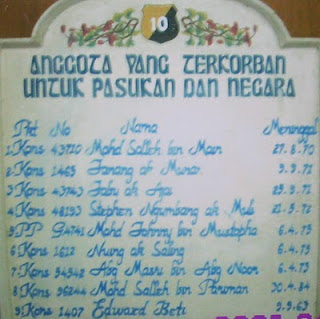 10
ANGGOTA YANG TERKORBAN
UNTUK PASUKAN DAN NEGARA
Pkt No Nama Meninggal
1 Kons 43720 Mohd Salleh bin Man 27.8.70
2 Kons 1465 Janang ak Munan 9.9.71
3 Kons 43743 Jabu ak Apa 29.9.71
4 Kons 48193 Stephen Ngumbang ak Mula 21.9.72
5 PP G4741 Mohd Johnny bin Mustapha 6.4.73
6 Kons 1612 Niung ak Saling 6.4.73
7 Kons 54542 Abg Masri bin Abg Noor 6.4.73
8 Kons 96244 Mohd Salleh bin Pariman 30.4.84
9 Kons 1407 Edward Beti 9.9.69